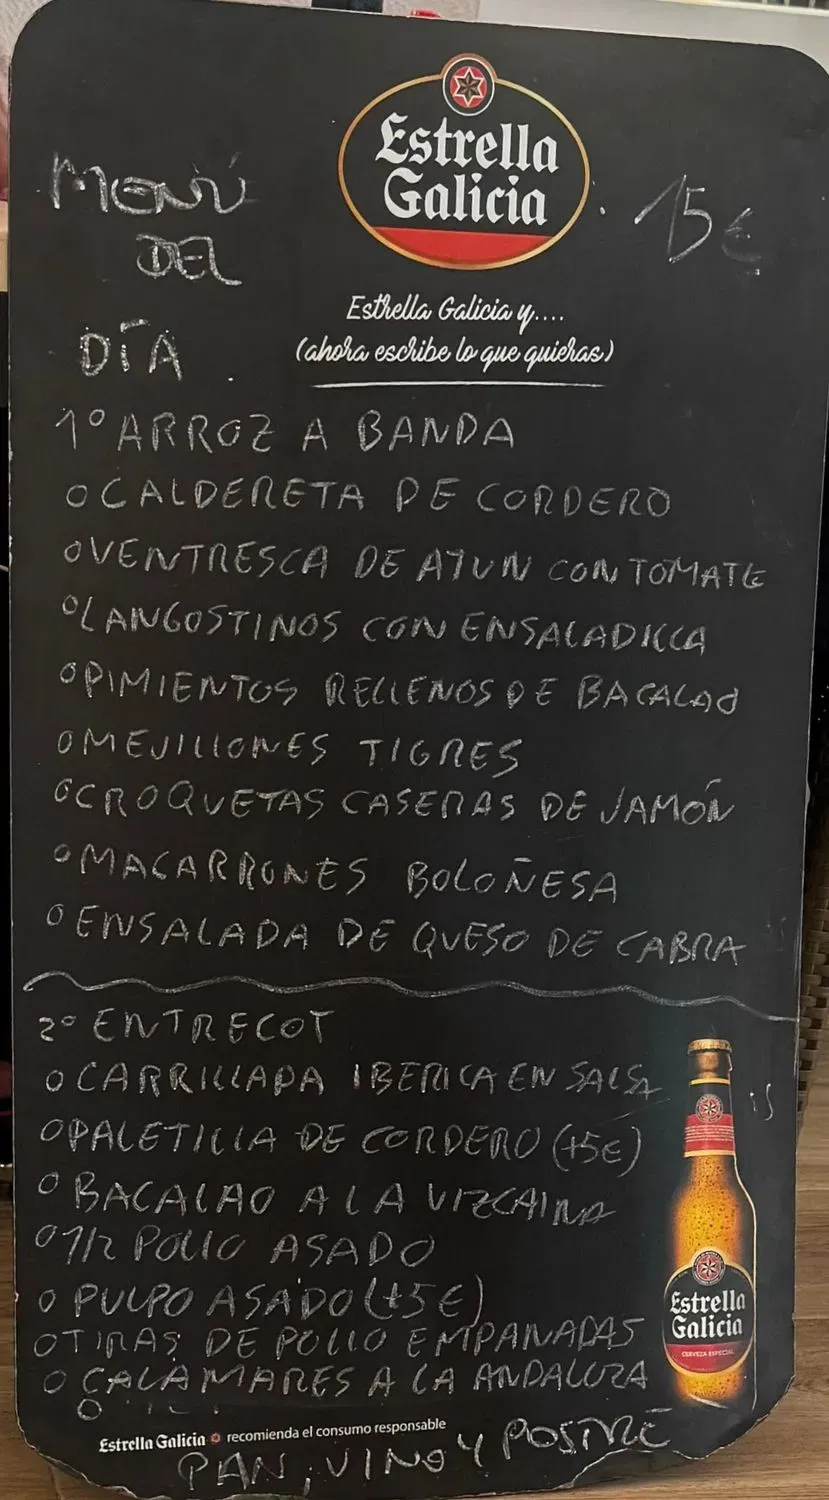 Estrella
Galicia
MENÚ
DEL
DÍA
15€
Estrella Galicia y....
(ahora escribe lo que quieras)
1º ARROZ A BANDA
o CALDERETA DE CORDERO
o VENTRESCA DE ATUN CON TOMATE
o LANGOSTINOS CON ENSALADILLA
o PIMIENTOS RELLENOS DE BACALAO
o MEJILLONES TIGRES
o CROQUETAS CASERAS DE JAMÓN
o MACARRONES BOLOÑESA
o ENSALADA DE QUESO DE CABRA
2º ENTRECOT
o CARRILLADA IBERICA EN SALSA
o PALETILLA DE CORDERO (+5€)
o BACALAO A LA VIZCAINA
o 1/2 POLLO ASADO
o PULPO ASADO (+5€)
o TIRAS DE POLLO EMPANADAS
o CALAMARES A LA ANDALUZA
o
Estrella
Galicia
CERVEZA ESPECIAL
Estrella Galicia recomienda el consumo responsable
PAN, VINO Y POSTRE